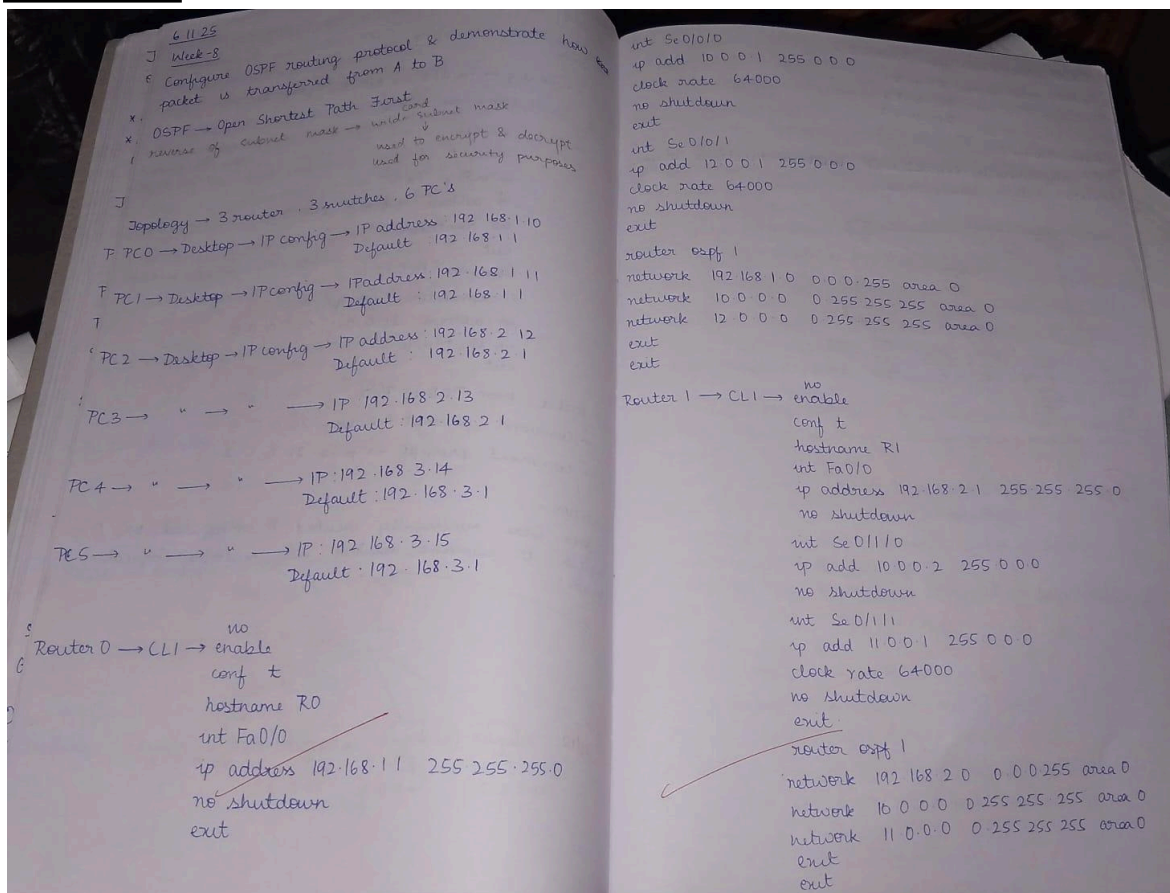 6.11.25
Week-8
Configure OSPF routing protocol & demonstrate how
packet is transferred from A to B
OSPF → Open Shortest Path First
reverse of subnet mask → wild card subnet mask
↓
used to encrypt & decrypt
used for security purposes
Topology → 3 router, 3 switches, 6 PC's
PC0 → Desktop → IP config → IP address 192.168.1.10
Default 192.168.1.1
PC1 → Desktop → IP config → IP address: 192.168.1.11
Default : 192.168.1.1
PC2 → Desktop → IP config → IP address: 192.168.2.12
Default : 192.168.2.1
PC3 → " → " → IP 192.168.2.13
Default : 192.168.2.1
PC4 → " → " → IP: 192.168.3.14
Default : 192.168.3.1
PC5 → " → " → IP: 192.168.3.15
Default : 192.168.3.1
no
Router 0 → CLI → enable
conf t
hostname R0
int Fa0/0
ip address 192.168.1.1 255.255.255.0
no shutdown
exit
int Se0/0/0
ip add 10.0.0.1 255.0.0.0
clock rate 64000
no shutdown
exit
int Se0/0/1
ip add 12.0.0.1 255.0.0.0
clock rate 64000
no shutdown
exit
router ospf 1
network 192.168.1.0 0.0.0.255 area 0
network 10.0.0.0 0.255.255.255 area 0
network 12.0.0.0 0.255.255.255 area 0
exit
exit
no
Router 1 → CLI → enable
conf t
hostname R1
int Fa0/0
ip address 192.168.2.1 255.255.255.0
no shutdown
int Se0/1/0
ip add 10.0.0.2 255.0.0.0
no shutdown
int Se0/1/1
ip add 11.0.0.1 255.0.0.0
clock rate 64000
no shutdown
exit
router ospf 1
network 192.168.2.0 0.0.0.255 area 0
network 10.0.0.0 0.255.255.255 area 0
network 11.0.0.0 0.255.255.255 area 0
exit
exit